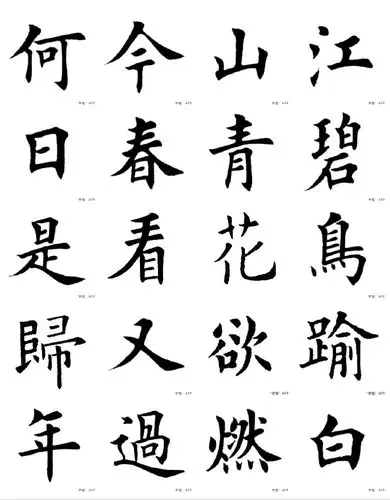 江碧鳥踰白
山青花欲燃
今春看又過
何日是歸年